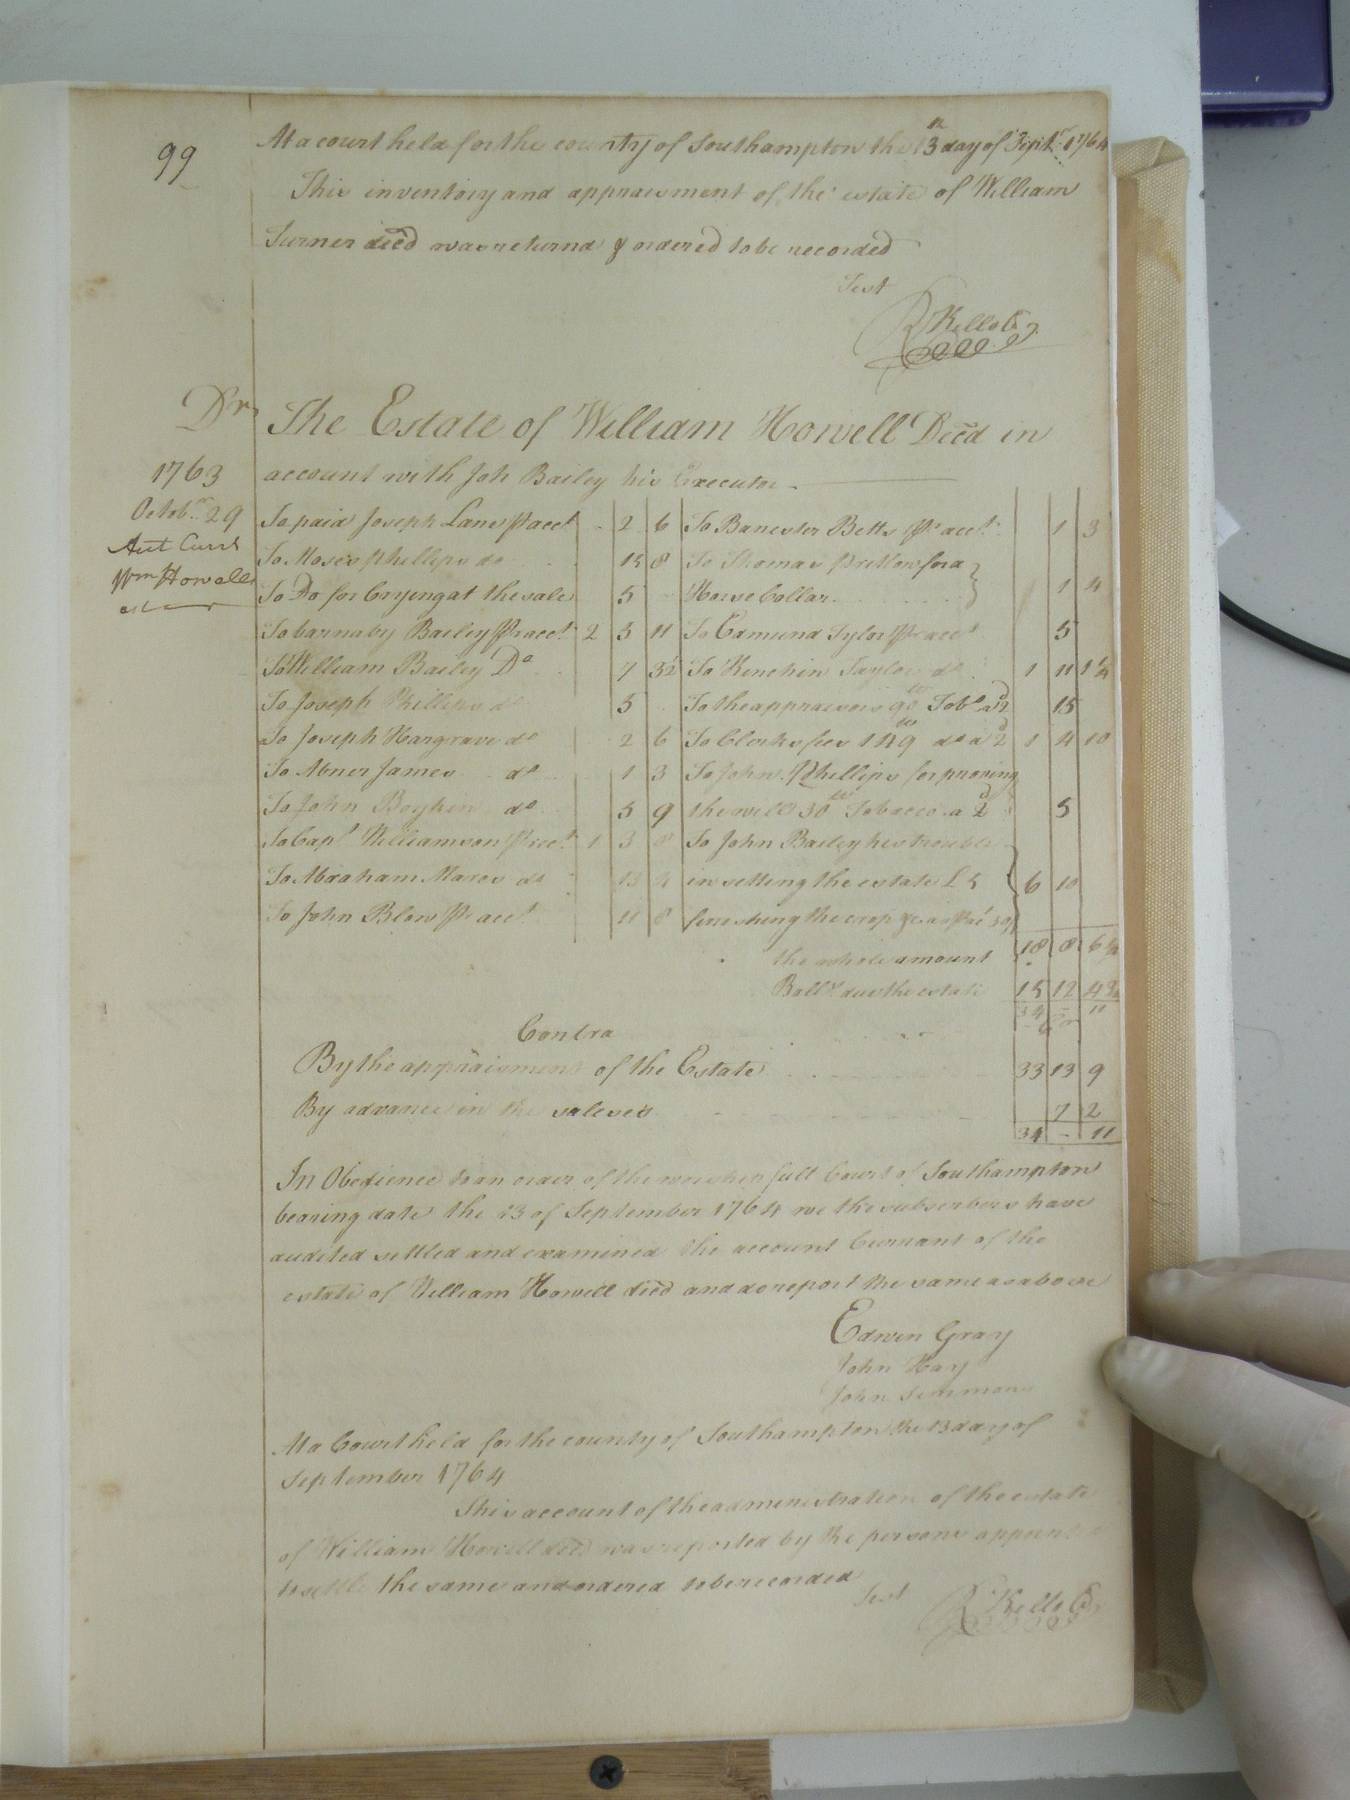 99
At a court held for the county of Southampton the 13th day of Septr. 1764
This inventory and appraisment of the estate of William
Turner decd was returnd & ordered to be recorded
Test
R Kello Ck
Dr. The Estate of William Howell Decd in
1763 account with Joh Bailey his Executor
Octobr. 29
Act Curt
Wm Howells
est
To paid Joseph Lane Pr acct - 2 6 To Banester Betts Pr acct 1 3
To Moses Phillips do 15 8 To Thomas Pretlow for a
To Do for Crying at the sale 5 - Horse Collar 1 4
To barnaby Bailey Pr acct 2 3 11 To Edmund Tylor Pr acct 5
To William Bailey Do 7 3½ To Kinchin Taylor do 1 11 1¼
To Joseph Phillips do 5 To the appraisors 90 lb Tobo a 2d 15
To Joseph Hargrave do 2 6 To Clerks fees 149 lb do a 2d 1 4 10
To Abner James do 1 3 To John Phillips for proving
To John Boykin do 5 9 the will 30 lb Tobacco a 2d 5
To Capt Williamson Pr acct 1 3 8 To John Bailey his trouble
To Abraham Mares do 13 4 in setling the estate £5 6 10
To John Blow Pr acct 11 8 finishing the crop
the whole amount 18 8 6½
Ballce due the estate 15 12 4½
34 - 11
Contra Cr
By the appraisment of the Estate 33 13 9
By advance in the saleses 7 2
34 - 11
In Obedience to an order of the worshipfull Court of Southampton
bearing date the 13 of September 1764 we the subscribers have
audited settled and examined the account Currant of the
estate of William Howell decd and do report the same as above
Edwin Gray
John Hay
John Simmons
At a Court held for the county of Southampton the 13 day of
September 1764
This account of the administration of the estate
of William Howell decd was reported by the persons appointed
to settle the same and ordered to be recorded
Test
R Kello Ck